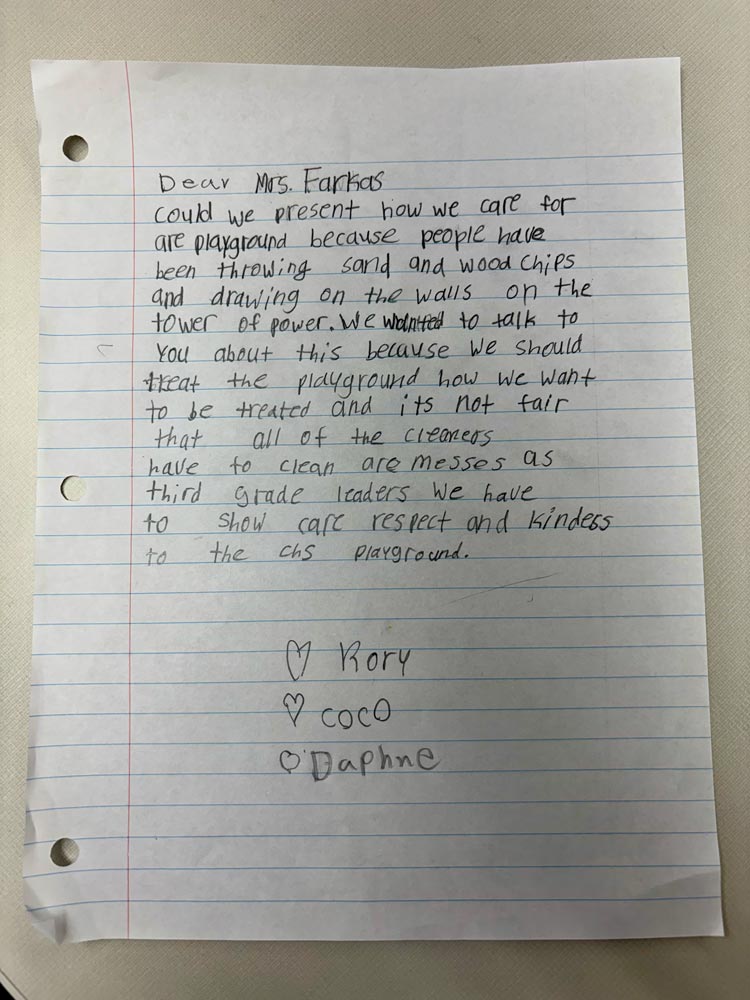 Dear Mrs. Farkas
could we present how we care for
are playground because people have
been throwing sand and wood chips
and drawing on the walls on the
tower of power. We wanted to talk to
you about this because we should
treat the playground how we want
to be treated and its not fair
that all of the cleaners
have to clean are messes as
third grade leaders we have
to show care respect and kindess
to the chs playground.
♡ Rory
♡ coco
♡ Daphne